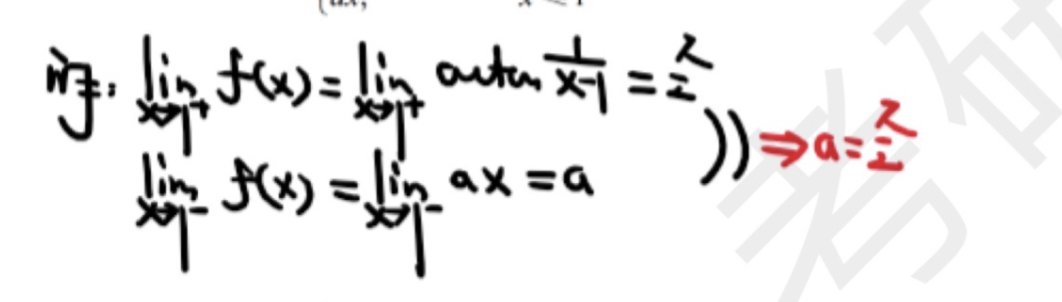 ax, x < 1
解: lim x→1⁺ f(x) = lim x→1⁺ arctan 1/(x-1) = π/2
lim x→1⁻ f(x) = lim x→1⁻ ax = a )) ⇒ a = π/2
考研